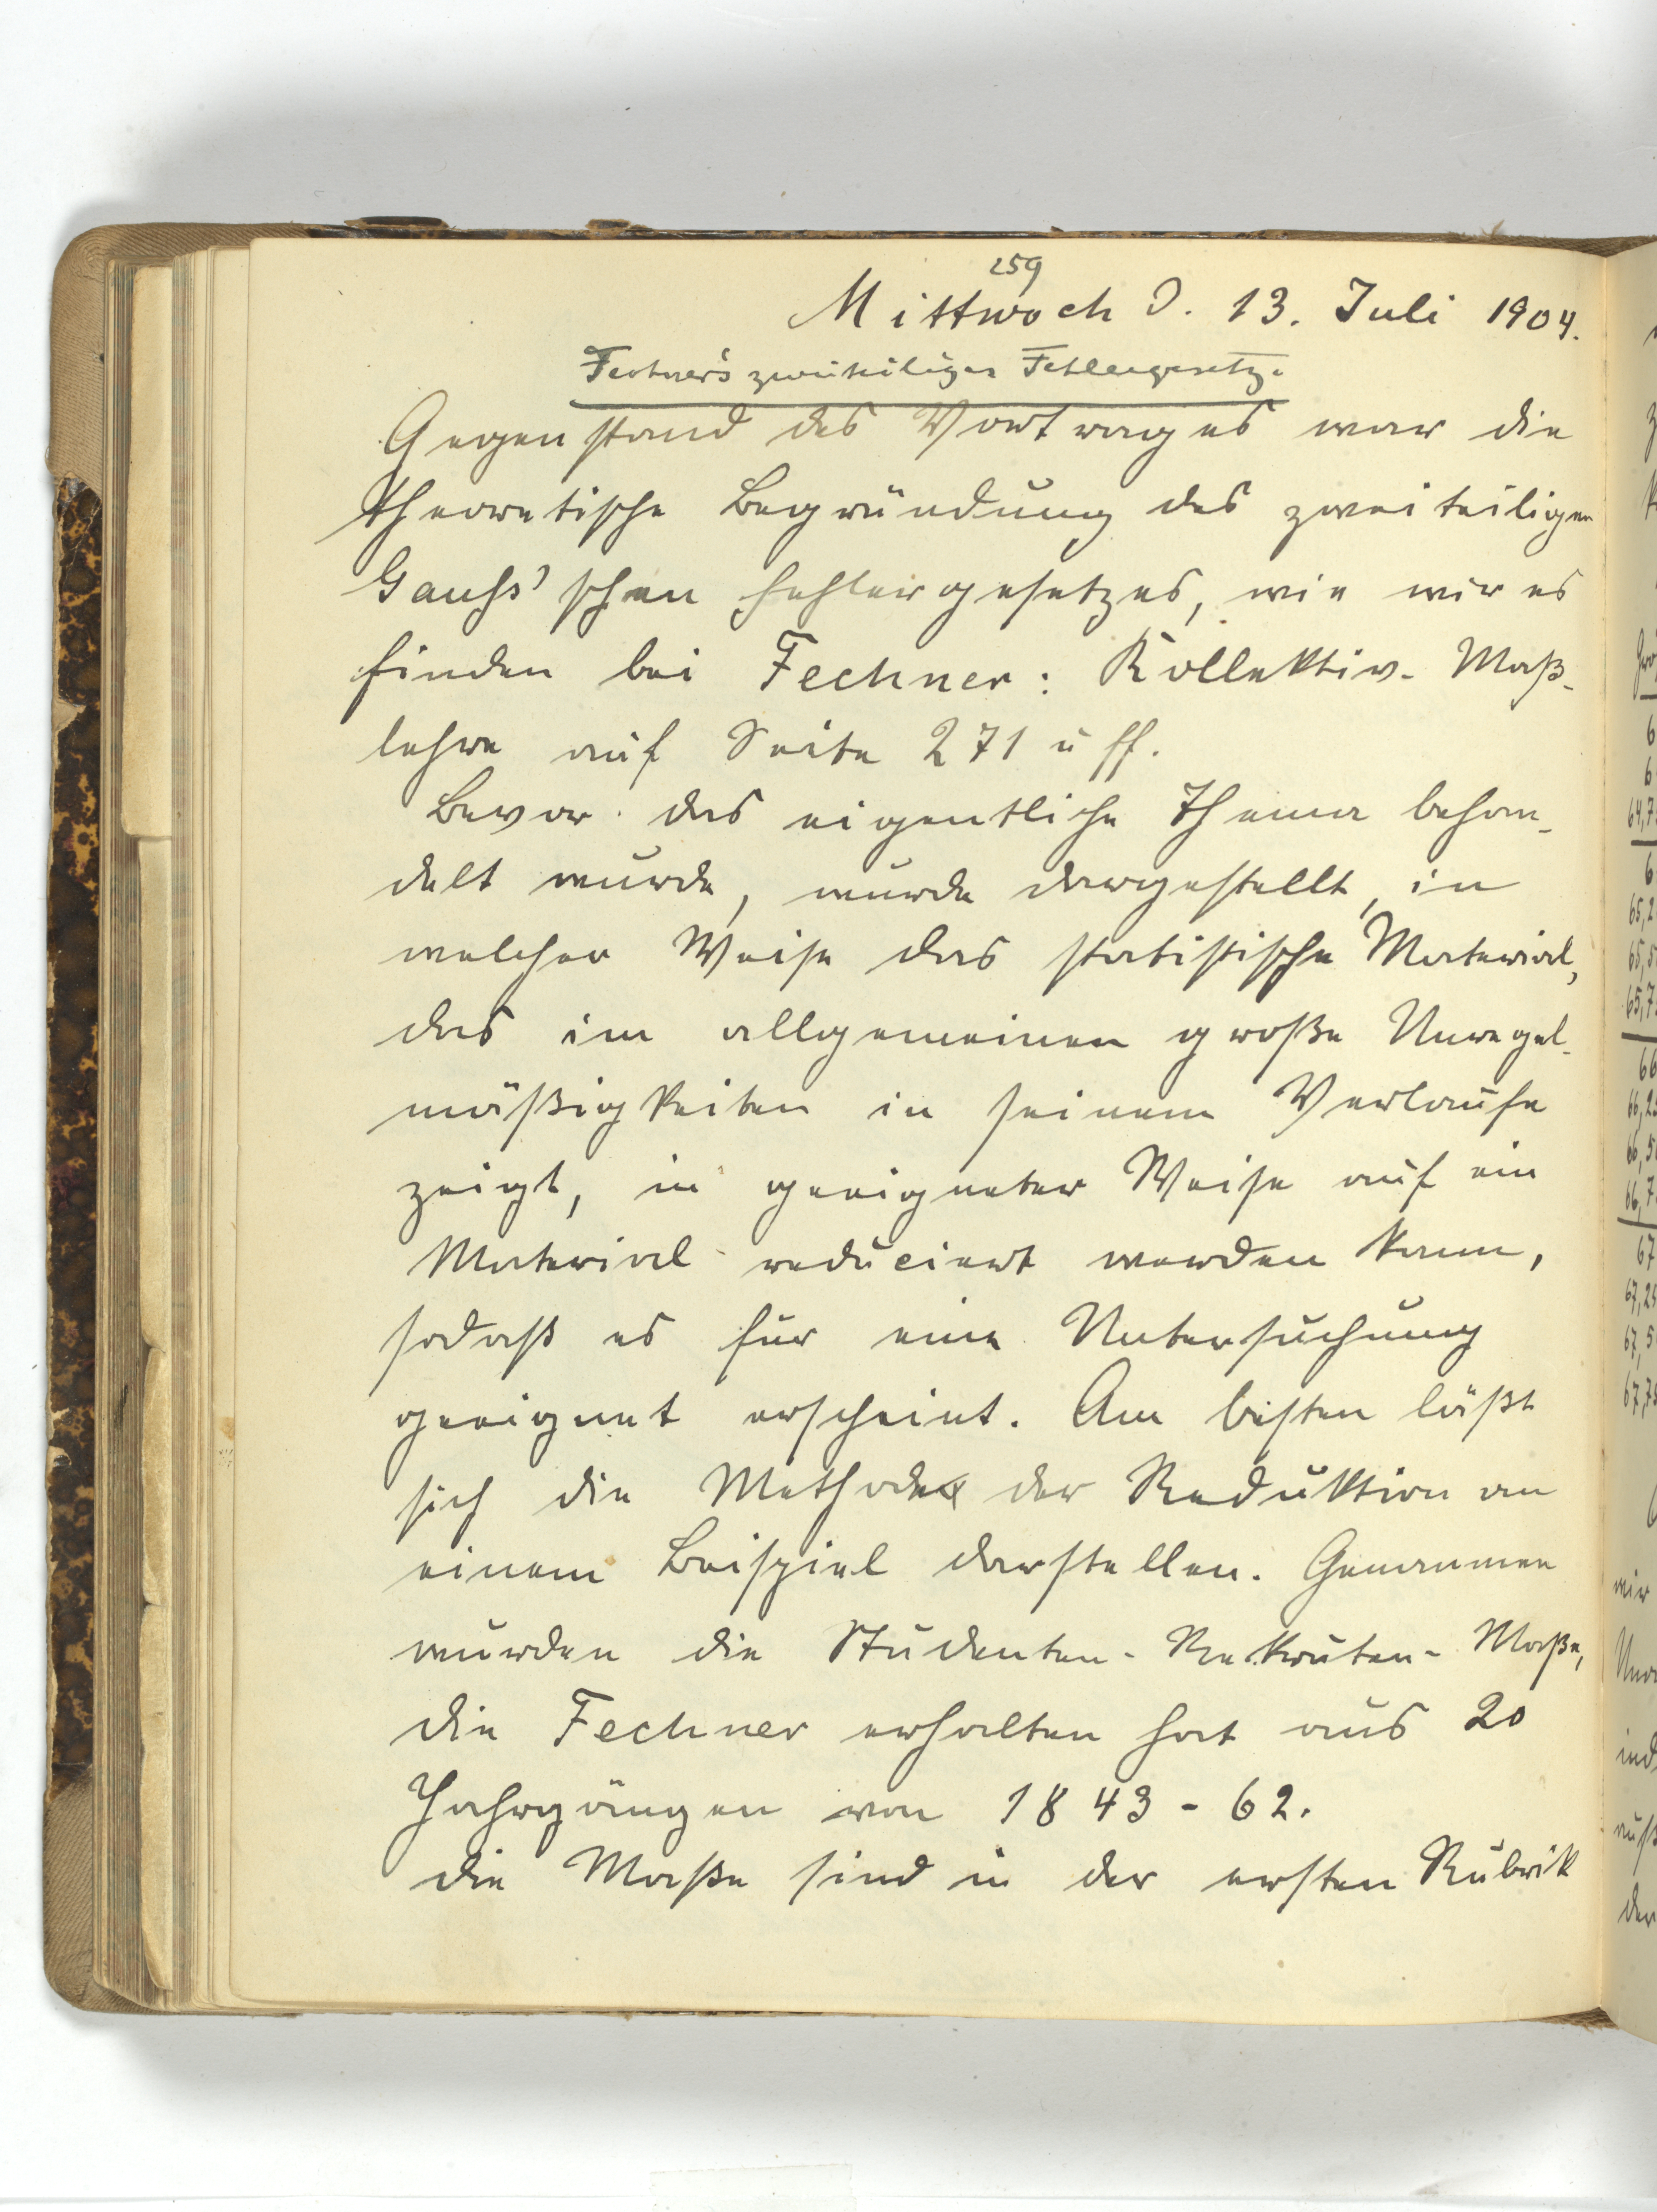 259
Mittwoch d. 13. Juli 1904.
Fechner's zweiteiliges Fehlergesetz.
Gegenstand des Vortrages war die
theoretische Begründung des zweiteiligen
Gauss'schen Fehlergesetzes, wie wir es
finden bei Fechner: Kollektiv-Maß-
lehre auf Seite 271 u ff.
Bevor das eigentliche Thema behan-
delt wurde, wurde dargestellt, in
welcher Weise das statistische Material,
das im allgemeinen große Unregel-
mäßigkeiten in seinem Verlaufe
zeigt, in geeigneter Weise auf ein
Material reduciert werden kann,
sodaß es für eine Untersuchung
geeignet erscheint. Am besten läßt
sich die Methode der Reduktion an
einem Beispiel darstellen. Genommen
wurden die Studenten-Rekruten-Maße,
die Fechner erhalten hat aus 20
Jahrgängen von 1843-62.
die Maße sind in der ersten Rubrik
64,7
65,2
65,5
65,7
66
66,25
66,5
66,7
67
67,25
67,5
67,75
wir